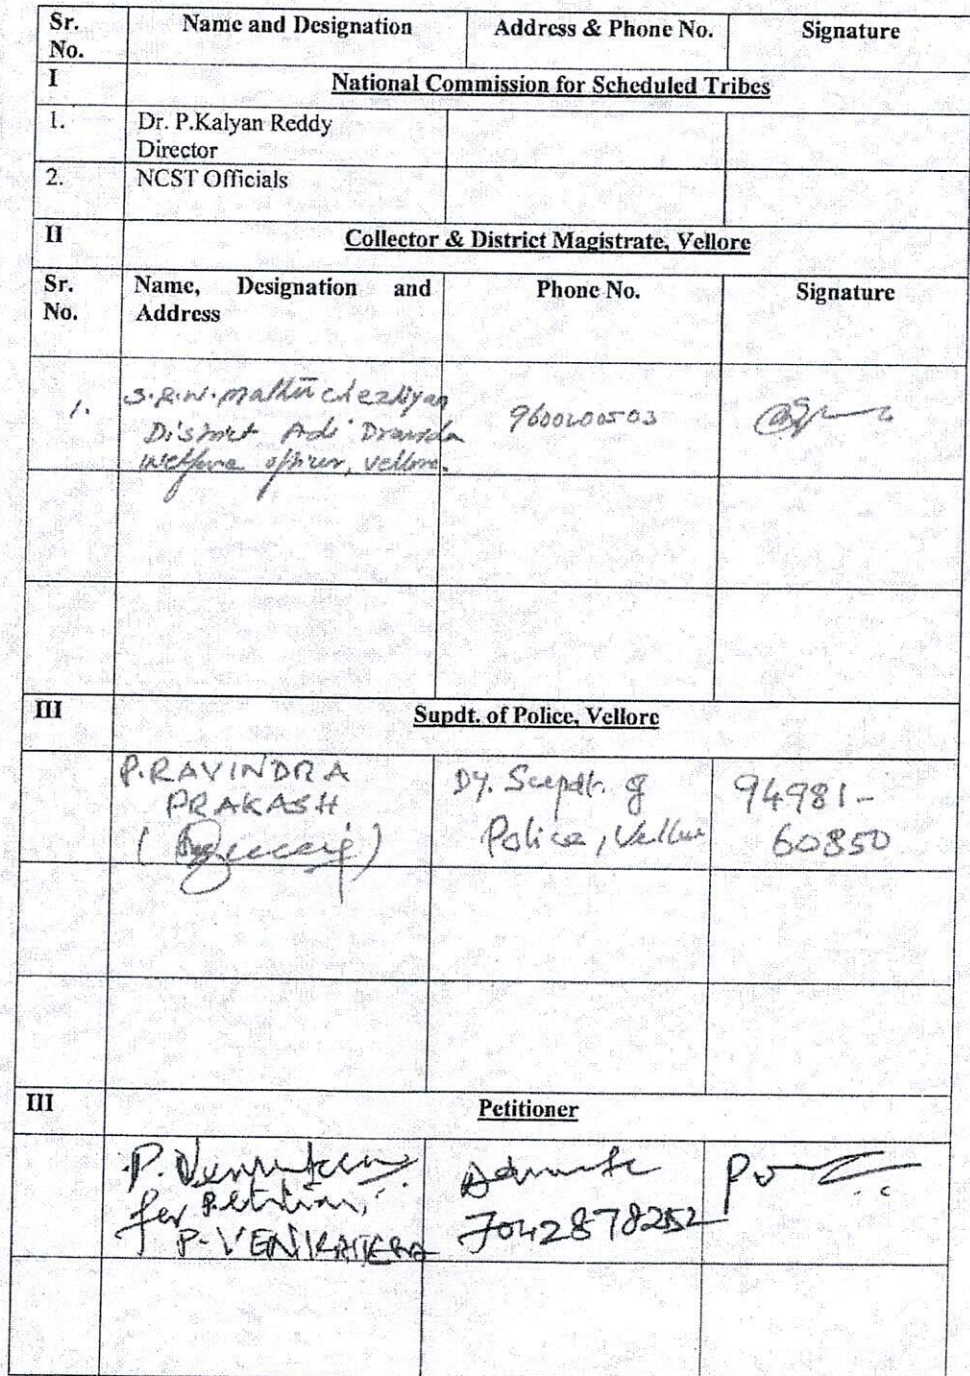 Sr. No.
Name and Designation
Address & Phone No.
Signature
I
National Commission for Scheduled Tribes
1.
Dr. P.Kalyan Reddy
Director
2.
NCST Officials
II
Collector & District Magistrate, Vellore
Sr. No.
Name, Designation and
Address
Phone No.
Signature
1.
District Adi Dravida
Welfare officer, Vellore.
III
Supdt. of Police, Vellore
P.RAVINDRA
PRAKASH
Dy. Supdt. of
Police, Vellore
94981-
60850
III
Petitioner
for
7042878252